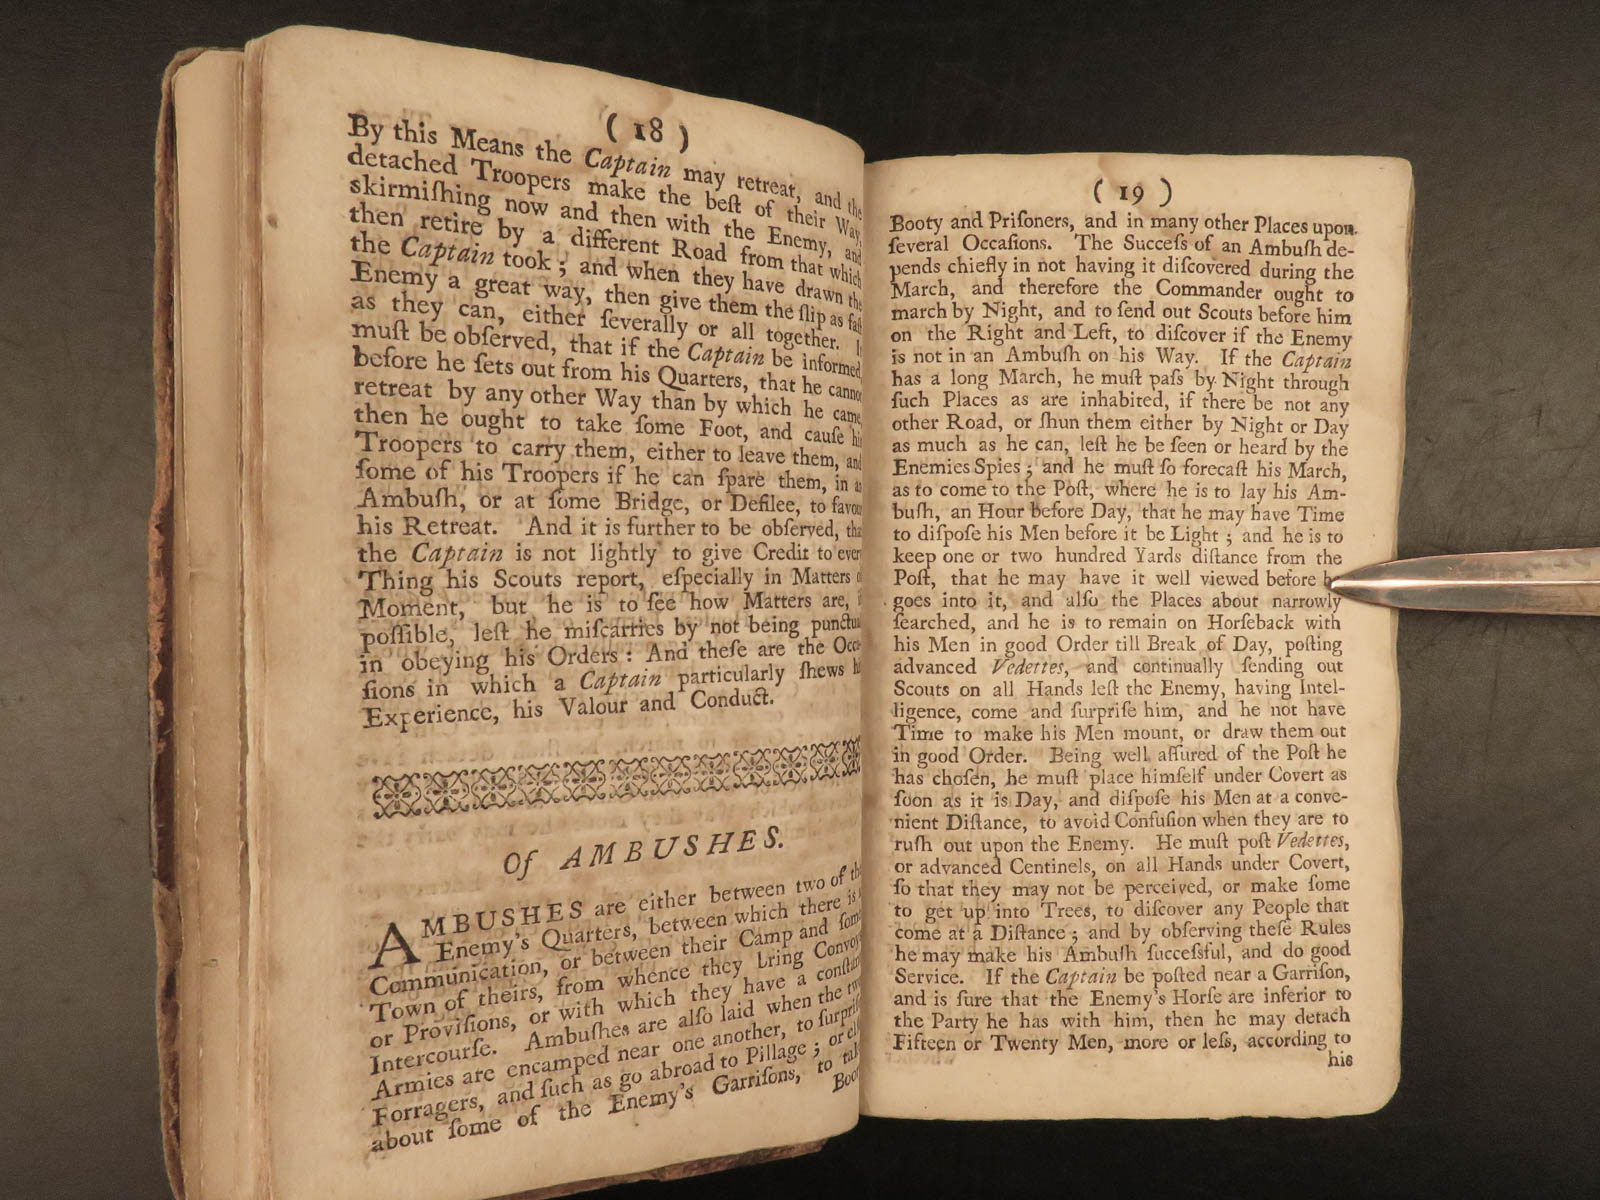 ( 18 )
By this Means the Captain may retreat, and the
detached Troopers make the beſt of their Way,
skirmiſhing now and then with the Enemy, and
then retire by a different Road from that which
the Captain took ; and when they have drawn the
Enemy a great way, then give them the ſlip as faſt
as they can, either ſeverally or all together. It
muſt be obſerved, that if the Captain be informed
before he ſets out from his Quarters, that he cannot
retreat by any other Way than by which he came,
then he ought to take ſome Foot, and cauſe his
Troopers to carry them, either to leave them, and
ſome of his Troopers if he can ſpare them, in an
Ambuſh, or at ſome Bridge, or Defilee, to favour
his Retreat. And it is further to be obſerved, that
the Captain is not lightly to give Credit to every
Thing his Scouts report, eſpecially in Matters of
Moment, but he is to ſee how Matters are, if
poſſible, leſt he miſcarries by not being punctual
in obeying his Orders : And theſe are the Occa-
ſions in which a Captain particularly ſhews his
Experience, his Valour and Conduct.
Of AMBUSHES.
AMBUSHES are either between two of the
Enemy's Quarters, between which there is a
Communication, or between their Camp and ſome
Town of theirs, from whence they bring Convoys
or Proviſions, or with which they have a conſtant
Intercourſe. Ambuſhes are alſo laid when the two
Armies are encamped near one another, to ſurpriſe
Forragers, and ſuch as go abroad to Pillage ; or elſe
about ſome of the Enemy's Garriſons, to take
Booty
( 19 )
Booty and Priſoners, and in many other Places upon
ſeveral Occaſions. The Succeſs of an Ambuſh de-
pends chiefly in not having it diſcovered during the
March, and therefore the Commander ought to
march by Night, and to ſend out Scouts before him
on the Right and Left, to diſcover if the Enemy
is not in an Ambuſh on his Way. If the Captain
has a long March, he muſt paſs by Night through
ſuch Places as are inhabited, if there be not any
other Road, or ſhun them either by Night or Day
as much as he can, leſt he be ſeen or heard by the
Enemies Spies ; and he muſt ſo forecaſt his March,
as to come to the Poſt, where he is to lay his Am-
buſh, an Hour before Day, that he may have Time
to diſpoſe his Men before it be Light ; and he is to
keep one or two hundred Yards diſtance from the
Poſt, that he may have it well viewed before he
goes into it, and alſo the Places about narrowly
ſearched, and he is to remain on Horſeback with
his Men in good Order till Break of Day, poſting
advanced Vedettes, and continually ſending out
Scouts on all Hands leſt the Enemy, having Intel-
ligence, come and ſurpriſe him, and he not have
Time to make his Men mount, or draw them out
in good Order. Being well aſſured of the Poſt he
has choſen, he muſt place himſelf under Covert as
ſoon as it is Day, and diſpoſe his Men at a conve-
nient Diſtance, to avoid Confuſion when they are to
ruſh out upon the Enemy. He muſt poſt Vedettes,
or advanced Centinels, on all Hands under Covert,
ſo that they may not be perceived, or make ſome
to get up into Trees, to diſcover any People that
come at a Diſtance ; and by obſerving theſe Rules
he may make his Ambuſh ſucceſsful, and do good
Service. If the Captain be poſted near a Garriſon,
and is ſure that the Enemy's Horſe are inferior to
the Party he has with him, then he may detach
Fifteen or Twenty Men, more or leſs, according to
his